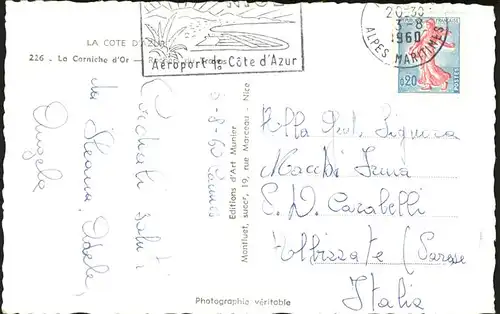 NICE
Aéroport de Côte d'Azur
20-30
3-8
1960
ALPES MARITIMES
0,20
POSTES
LA COTE D'AZUR
226 - La Corniche d'Or -
Cordiali saluti
da Steana, Adele,
Angela
3-8-60 Cannes
Editions d'Art Munier
Manfluet, succr, 19, rue Marceau - Nice
Alla Gent. Signora
Macchi Irma
E. D. Carabelli
Albizzate (Varese)
Italia
Photographie véritable